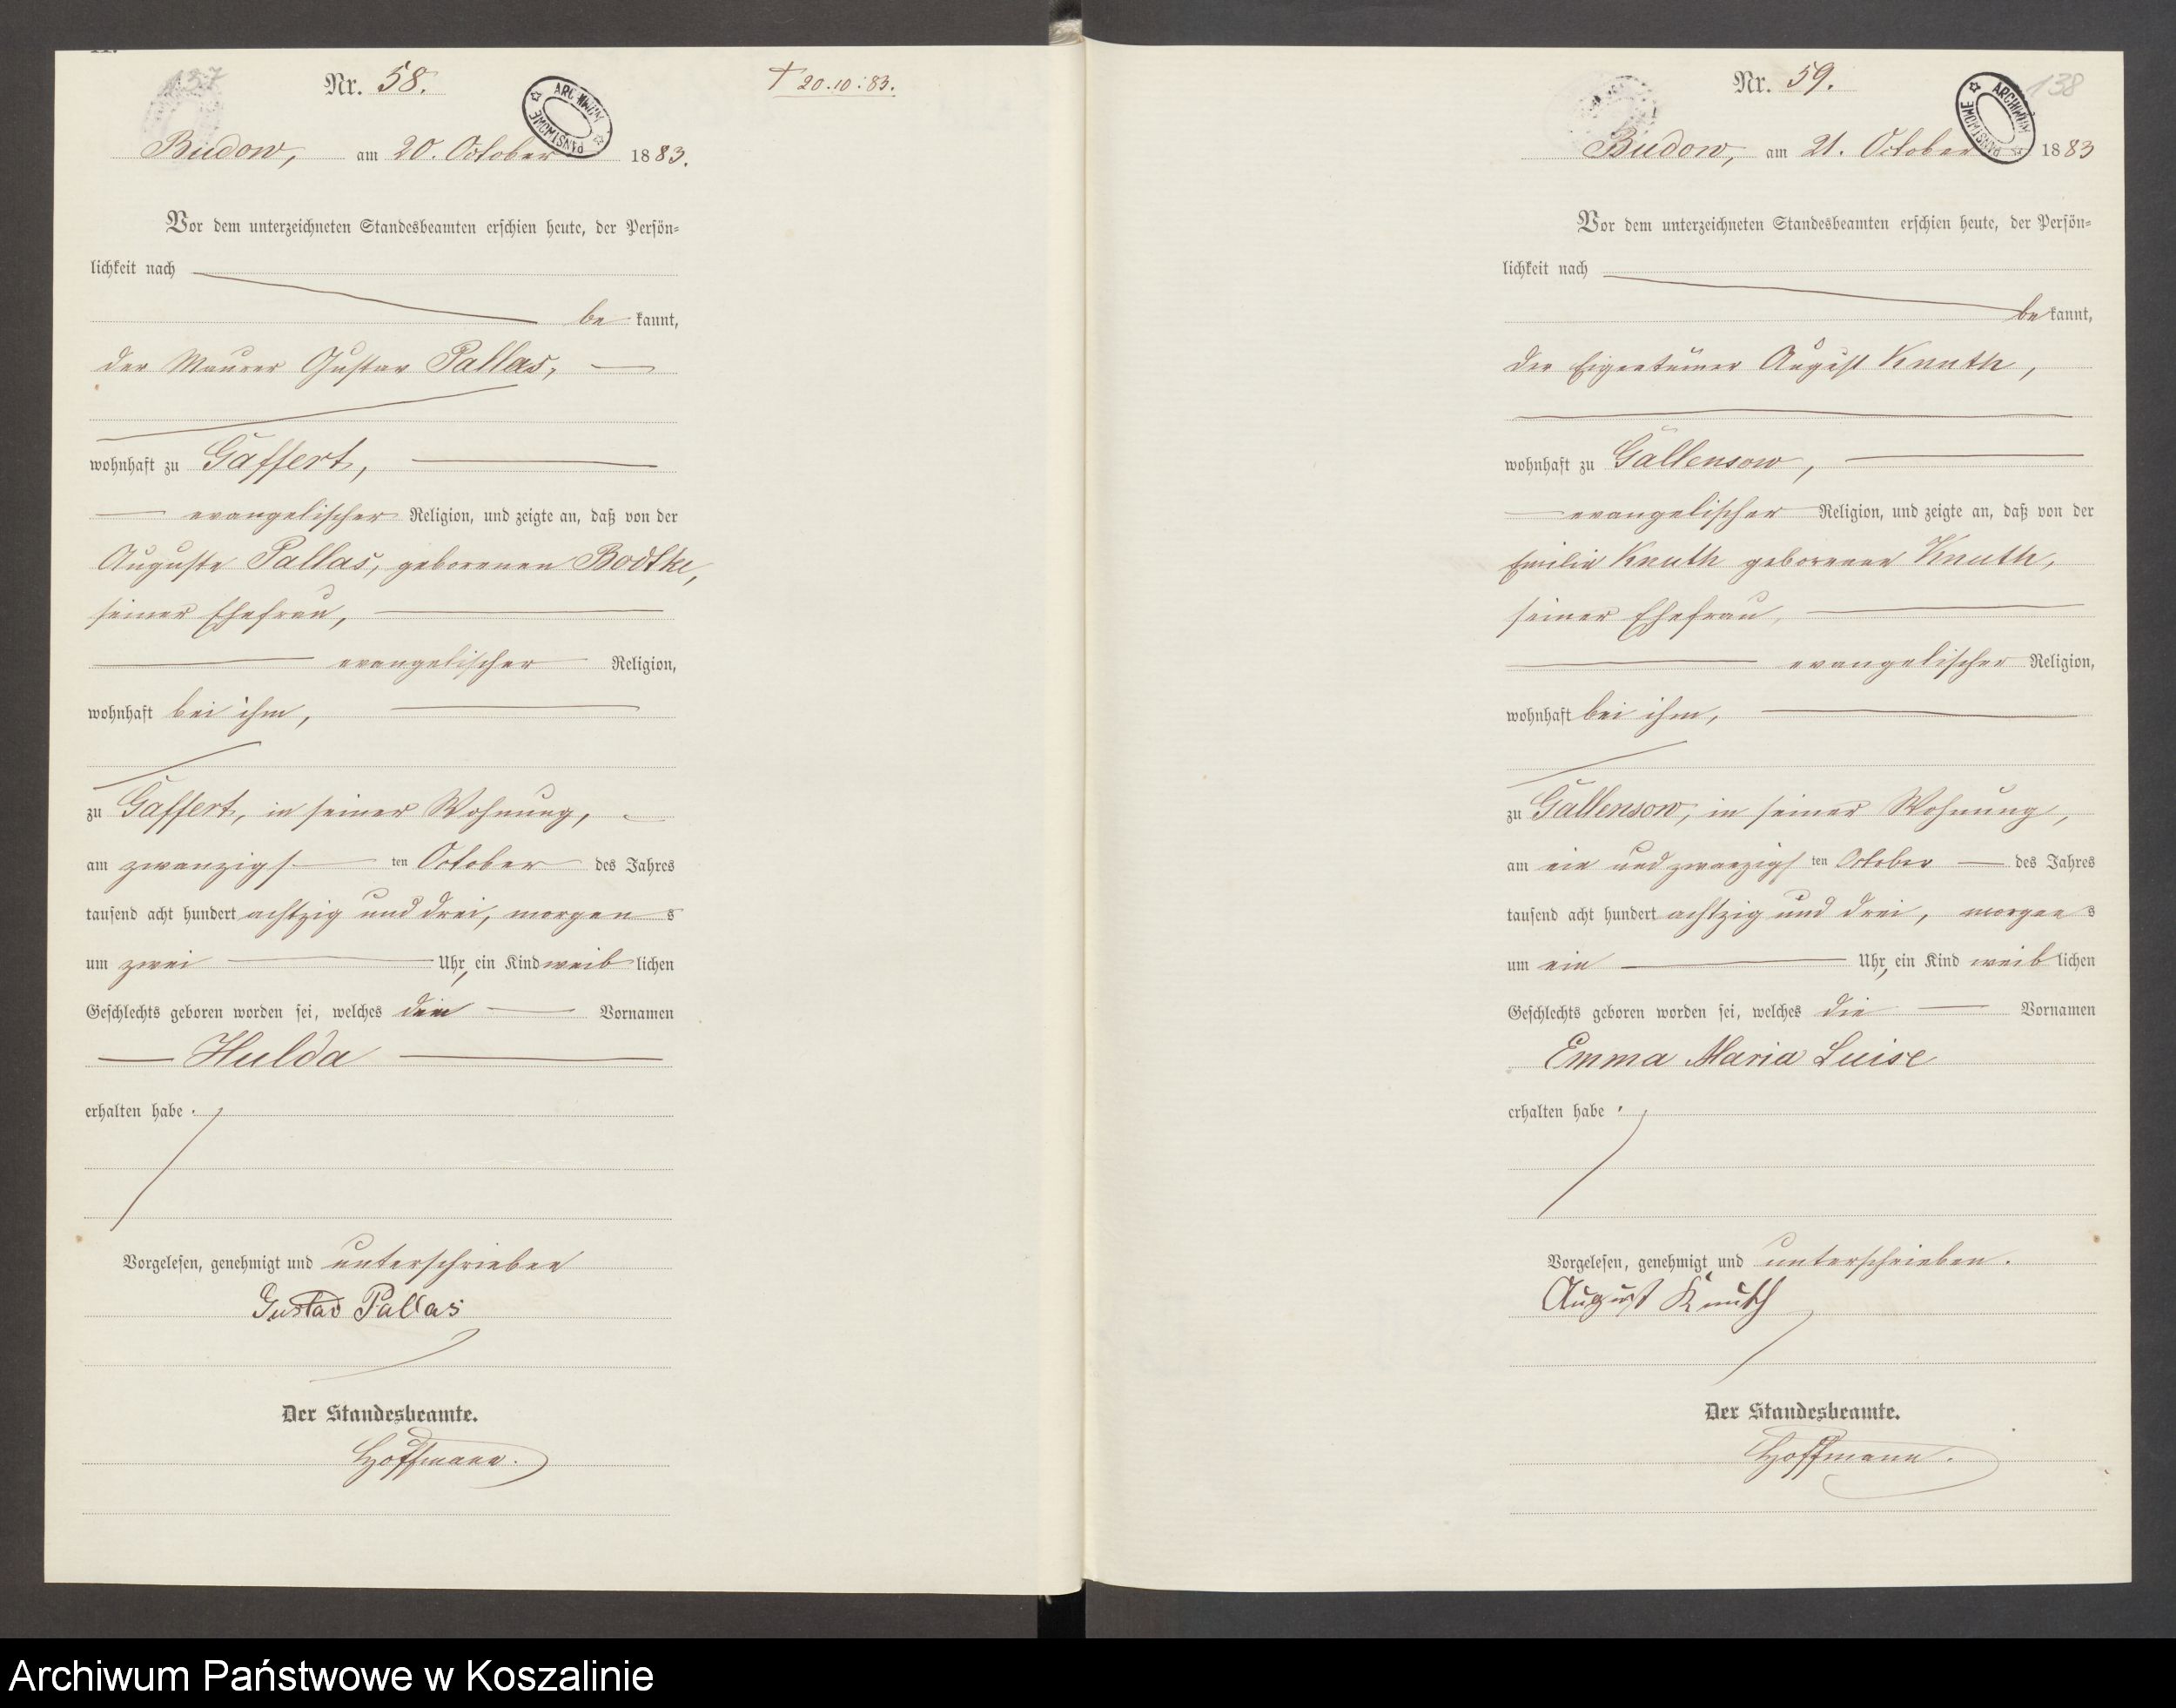 137
Nr. 58.
† 20.10.83.
ARCHIWUM PAŃSTWOWE
Budow, am 20. October 1883.
Vor dem unterzeichneten Standesbeamten erschien heute, der Persön-
lichkeit nach
be kannt,
der Maurer Gustav Pallas,
wohnhaft zu Gaffert,
evangelischer Religion, und zeigte an, daß von der
Auguste Pallas, geborenen Bodtke,
seiner Ehefrau,
evangelischer Religion,
wohnhaft bei ihm,
zu Gaffert, in seiner Wohnung,
am zwanzigs ten October des Jahres
tausend acht hundert achtzig und drei, morgen s
um zwei Uhr, ein Kind weib lichen
Geschlechts geboren worden sei, welches den Vornamen
Hulda
erhalten habe.
Vorgelesen, genehmigt und unterschrieben
Gustav Pallas
Der Standesbeamte.
Hoffmann.
138
Nr. 59.
ARCHIWUM PAŃSTWOWE
Budow, am 21. October 1883
Vor dem unterzeichneten Standesbeamten erschien heute, der Persön-
lichkeit nach
be kannt,
der Eigentümer August Knuth,
wohnhaft zu Gallensow,
evangelischer Religion, und zeigte an, daß von der
Emilie Knuth geborenen Knuth,
seiner Ehefrau,
evangelischer Religion,
wohnhaft bei ihm,
zu Gallensow, in seiner Wohnung,
am ein und zwanzigs ten October des Jahres
tausend acht hundert achtzig und drei, morgen s
um ein Uhr, ein Kind weib lichen
Geschlechts geboren worden sei, welches die Vornamen
Emma Maria Luise
erhalten habe.
Vorgelesen, genehmigt und unterschrieben.
August Knuth
Der Standesbeamte.
Hoffmann.
Archiwum Państwowe w Koszalinie